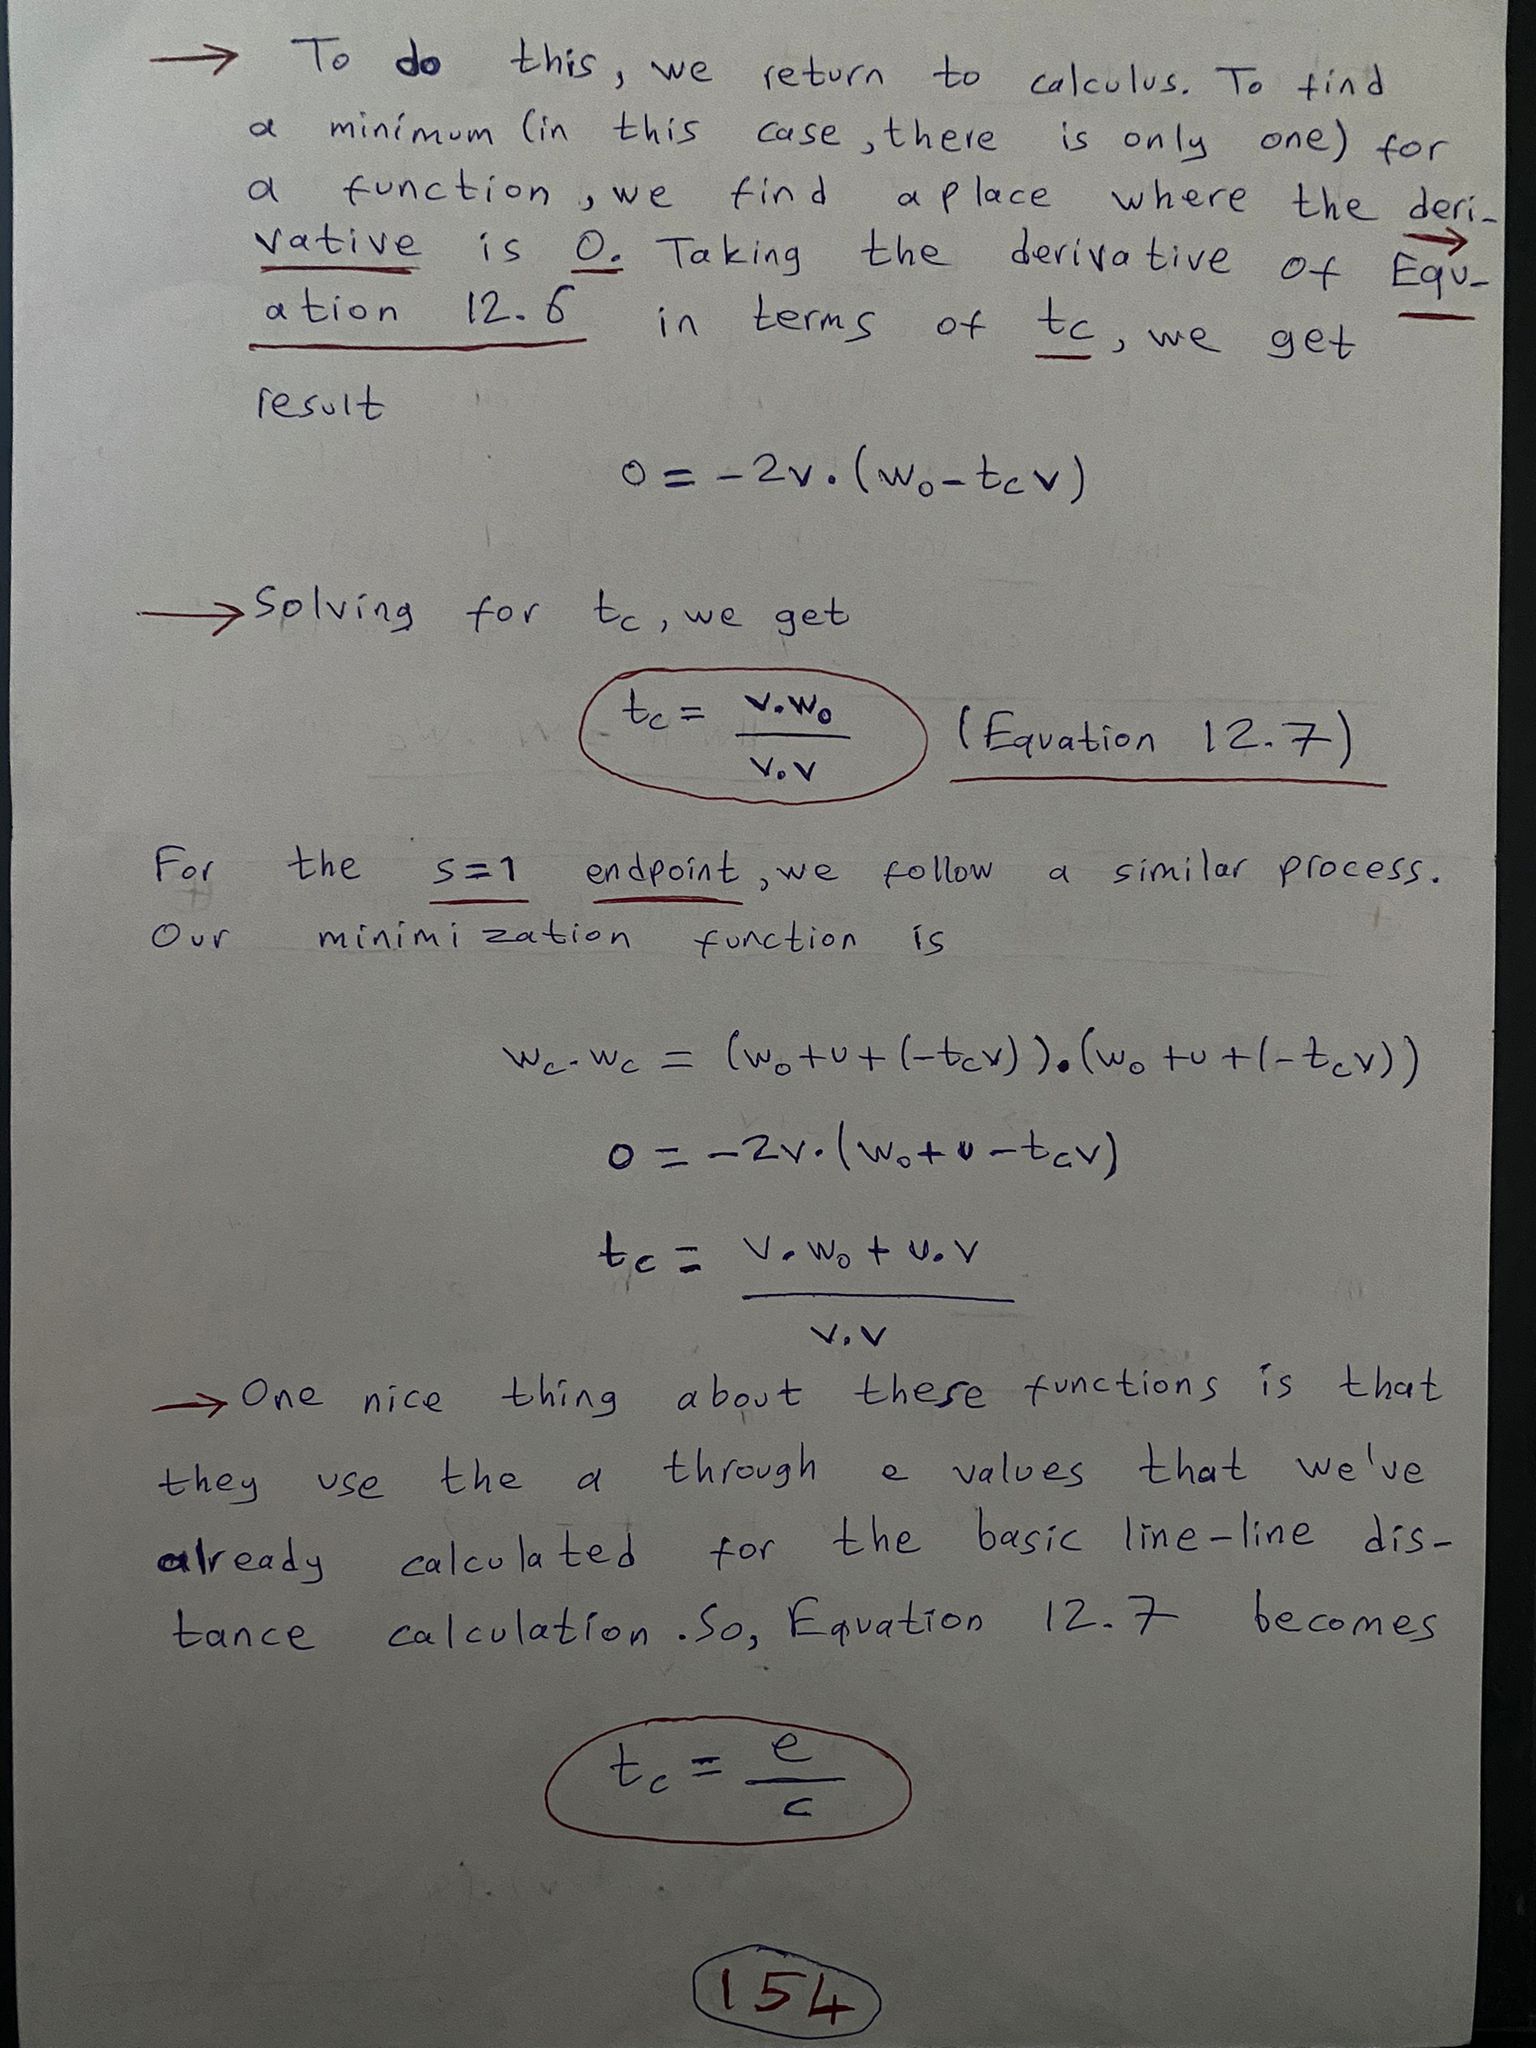 → To do this, we return to calculus. To find
a minimum (in this case, there is only one) for
a function, we find a place where the deri-
vative is 0. Taking the derivative of Equ-
ation 12.6 in terms of tc, we get
result
0 = -2v.(w₀-tcv)
→ Solving for tc, we get
tc = v.w₀ / v.v (Equation 12.7)
For the s=1 endpoint, we follow a similar process.
Our minimization function is
wc.wc = (w₀+u+(-tcv)).(w₀+u+(-tcv))
0 = -2v.(w₀+u-tcv)
tc = v.w₀+u.v / v.v
→ One nice thing about these functions is that
they use the a through e values that we've
already calculated for the basic line-line dis-
tance calculation. So, Equation 12.7 becomes
tc = e / c
154